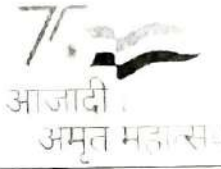 आज़ादी
अमृत महोत्स